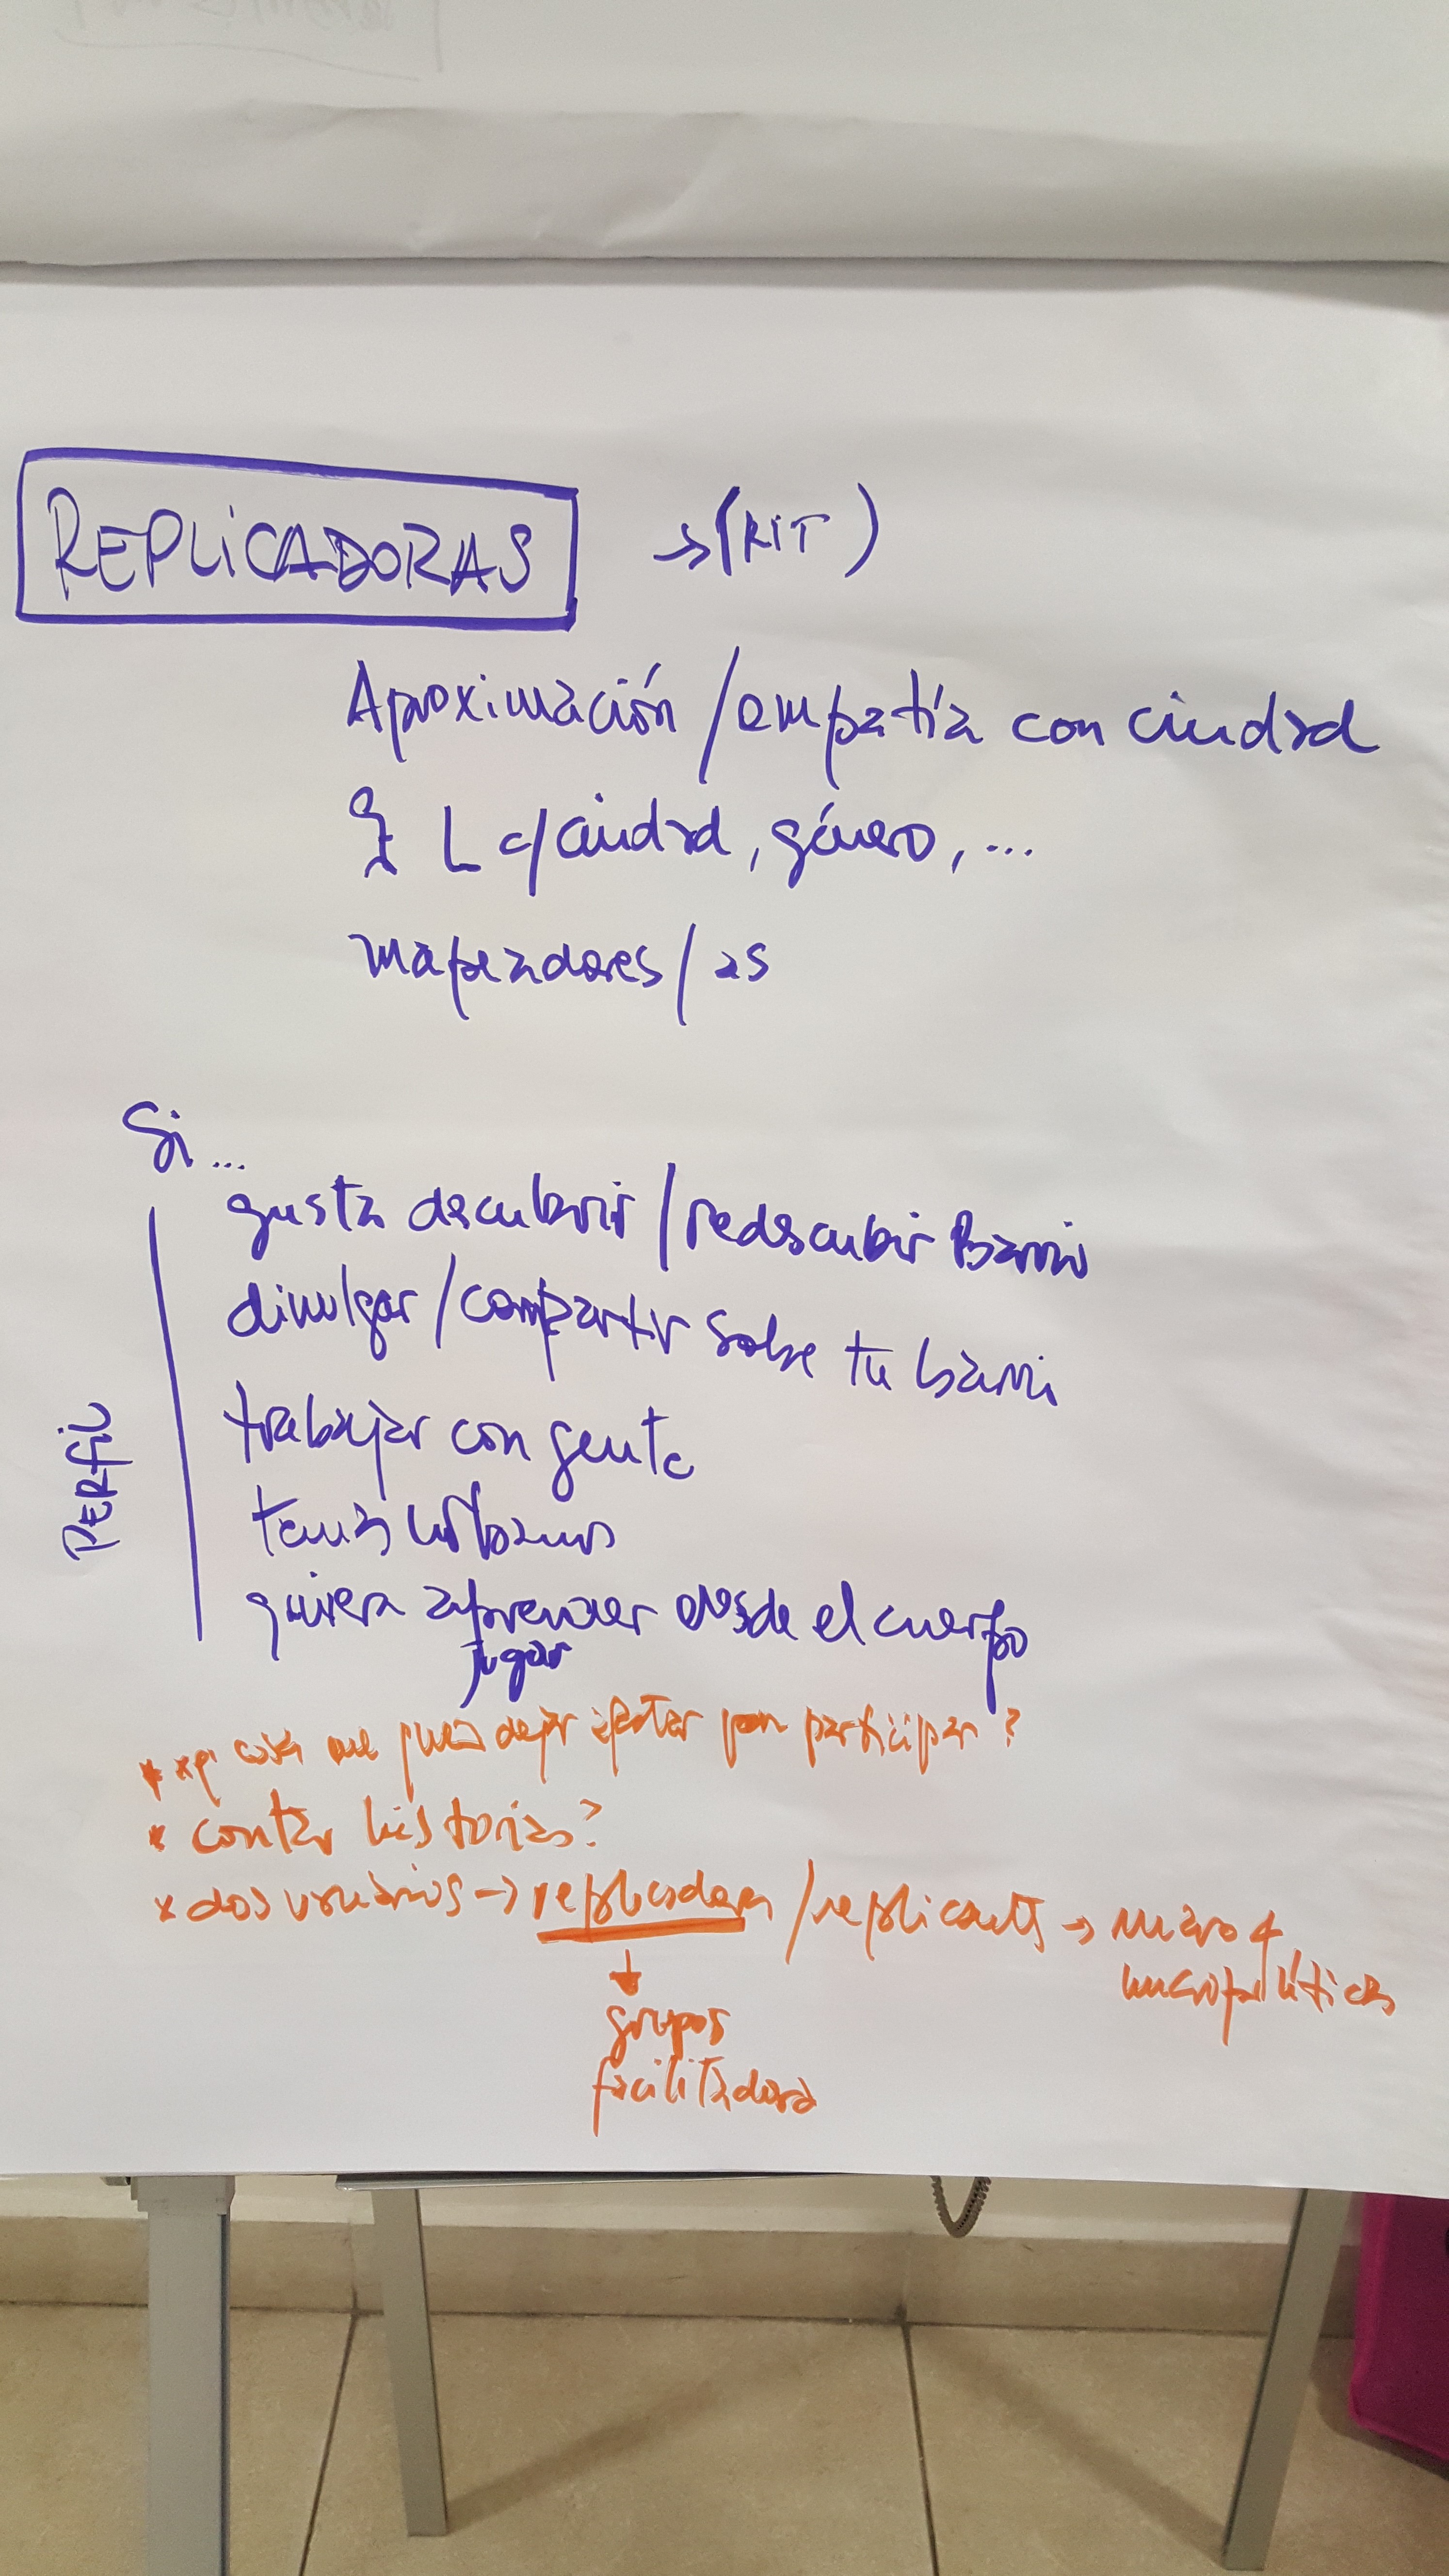 REPLICADORAS → (KIT)
Aproximación / empatía con ciudad
L c/ciudad, género, ...
mapeadores/as
Si...
gusta descubrir / redescubir Barrio
divulgar / compartir sobre tu barrio
trabajar con gente
temas urbanos
quiera aprender desde el cuerpo
jugar
PERFIL
cosa que puedes dejar para participar?
* contar historias?
* dos usuarios → replicadoras / replicants → micro
micropolíticas
↓
grupos
facilitadora